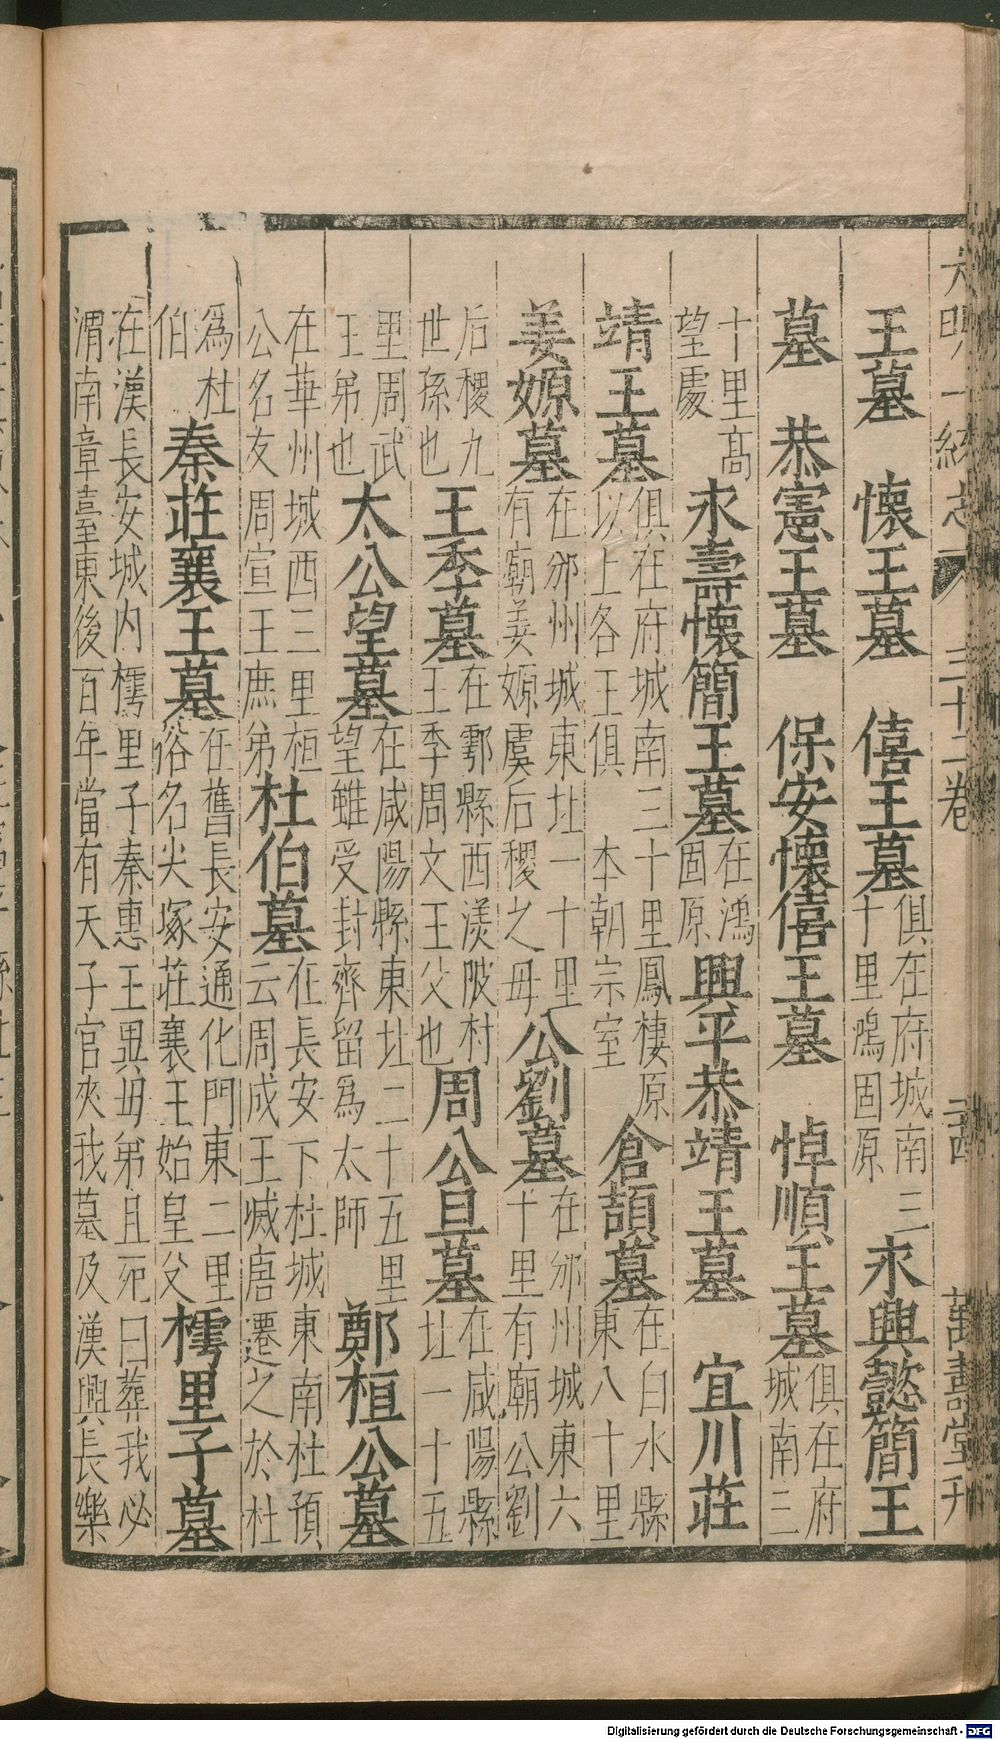 大明一統志 三十二卷 萬壽堂刊
王墓 懷王墓 僖王墓 俱在府城南三十里鴻固原 永興懿簡王
墓 恭憲王墓 保安懷僖王墓 悼順王墓 俱在府城南三
十里高望處 永壽懷簡王墓 在鴻固原 興平恭靖王墓 宜川莊
靖王墓 俱在府城南三十里鳳棲原以上各王俱 本朝宗室 倉頡墓 在白水縣東八十里
姜嫄墓 在邠州城東北一十里有廟姜嫄虞后稷之母 公劉墓 在邠州城東六十里有廟公劉
后稷九世孫也 王季墓 在鄠縣西渼陂村王季周文王父也 周公旦墓 在咸陽縣北一十五
里周武王弟也 太公望墓 在咸陽縣東北二十五里望雖受封齊留爲太師 鄭桓公墓
在華州城西三里桓公名友周宣王庶弟 杜伯墓 在長安下杜城東南杜預云周成王滅唐遷之於杜
爲杜伯 秦莊襄王墓 在舊長安通化門東二里俗名尖塚莊襄王始皇父 樗里子墓
在漢長安城内樗里子秦惠王異母弟且死曰葬我必渭南章臺東後百年當有天子宫夾我墓及漢興長樂
Digitalisierung gefördert durch die Deutsche Forschungsgemeinschaft - DFG